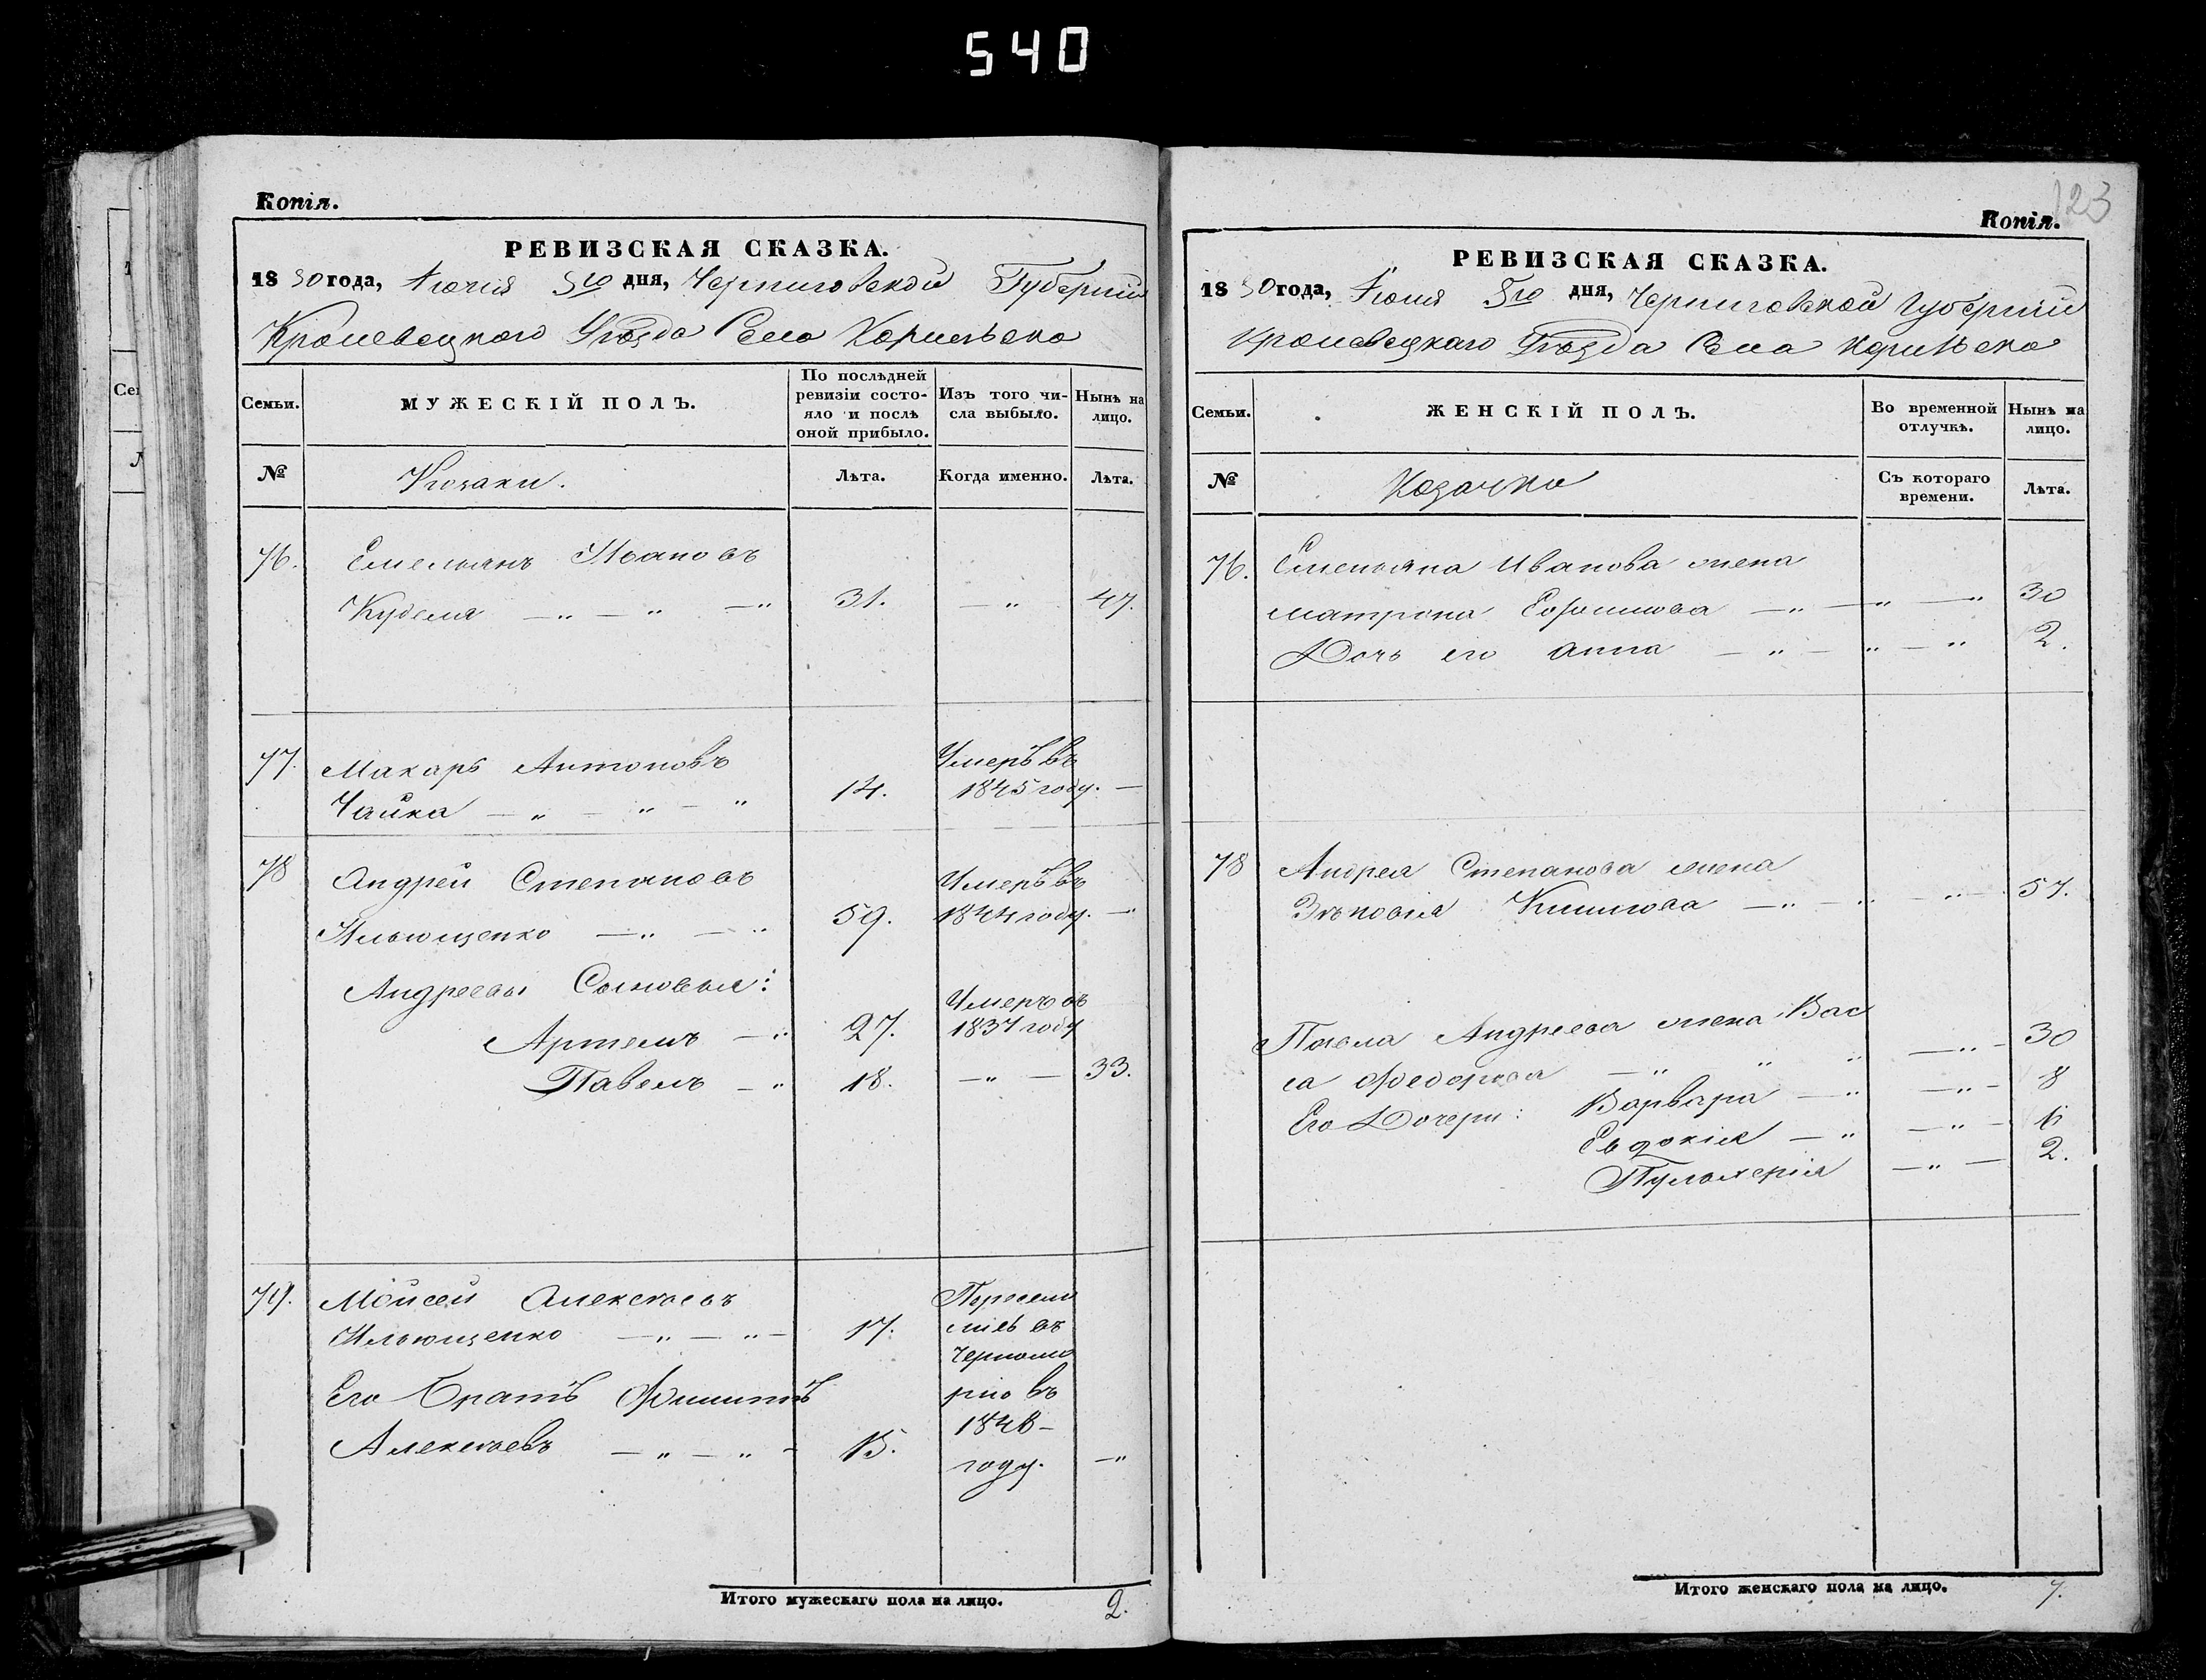 540
Копія.
РЕВИЗСКАЯ СКАЗКА.
1850 года, Іюня 5го дня, Черниговской Губерніи
Кролевецкого Уѣзда Села
Семьи.
МУЖЕСКІЙ ПОЛЪ.
По послѣдней ревизіи состояло и послѣ оной прибыло.
Изъ того числа выбыло.
Нынѣ на лицо.
№
Козаки.
Лѣта.
Когда именно.
Лѣта.
76. Емельянъ Ивановъ
Куделя — " — " — " 31. — " 47.
77. Макаръ Антоновъ Умеръ въ
Чайка — " — " — " 14. 1845 году. —
78 Андрей Степановъ Умеръ въ
Ильющенко — " — " 59. 1844 году. — "
Андреевы Сыновья:
Артемъ — " 27. Умеръ въ 1837 году
Павелъ — " 18. — " — 33.
79. Мойсей Алексѣевъ Пересели
Ильющенко — " — " — 17. лись въ
Черномо
Его Братъ Филипъ рію въ
184
Алексѣевъ — " — " — 15. году. — "
Итого мужескаго пола на лицо. 2.
123
Копія.
РЕВИЗСКАЯ СКАЗКА.
1850 года, Іюня 5го дня, Черниговской Губерніи
Кролевецкаго Уѣзда Села
Семьи.
ЖЕНСКІЙ ПОЛЪ.
Во временной отлучкѣ.
Нынѣ на лицо.
№
Козачки
Съ котораго времени.
Лѣта.
76. Емельяна Иванова жена
Матрона Ефимова — " — " — " 30
Дочь его Анна — " — " — " 2.
78 Андрея Степанова жена
Зѣновія — " — " — " — 57.
Павла Андреева жена Вас
са Федорова — " " " — " — 30
Его Дочери: Варвара — " — " — 8
Евдокія — " — " — 6
Пульхерія — " — 2.
Итого женскаго пола на лицо. 7.